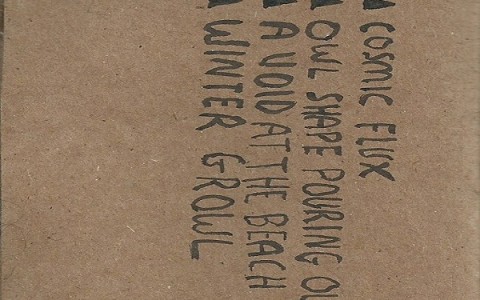 COSMIC FLUX
OWL SHAPE POURING OU
A VOID AT THE BEACH
WINTER GROWL